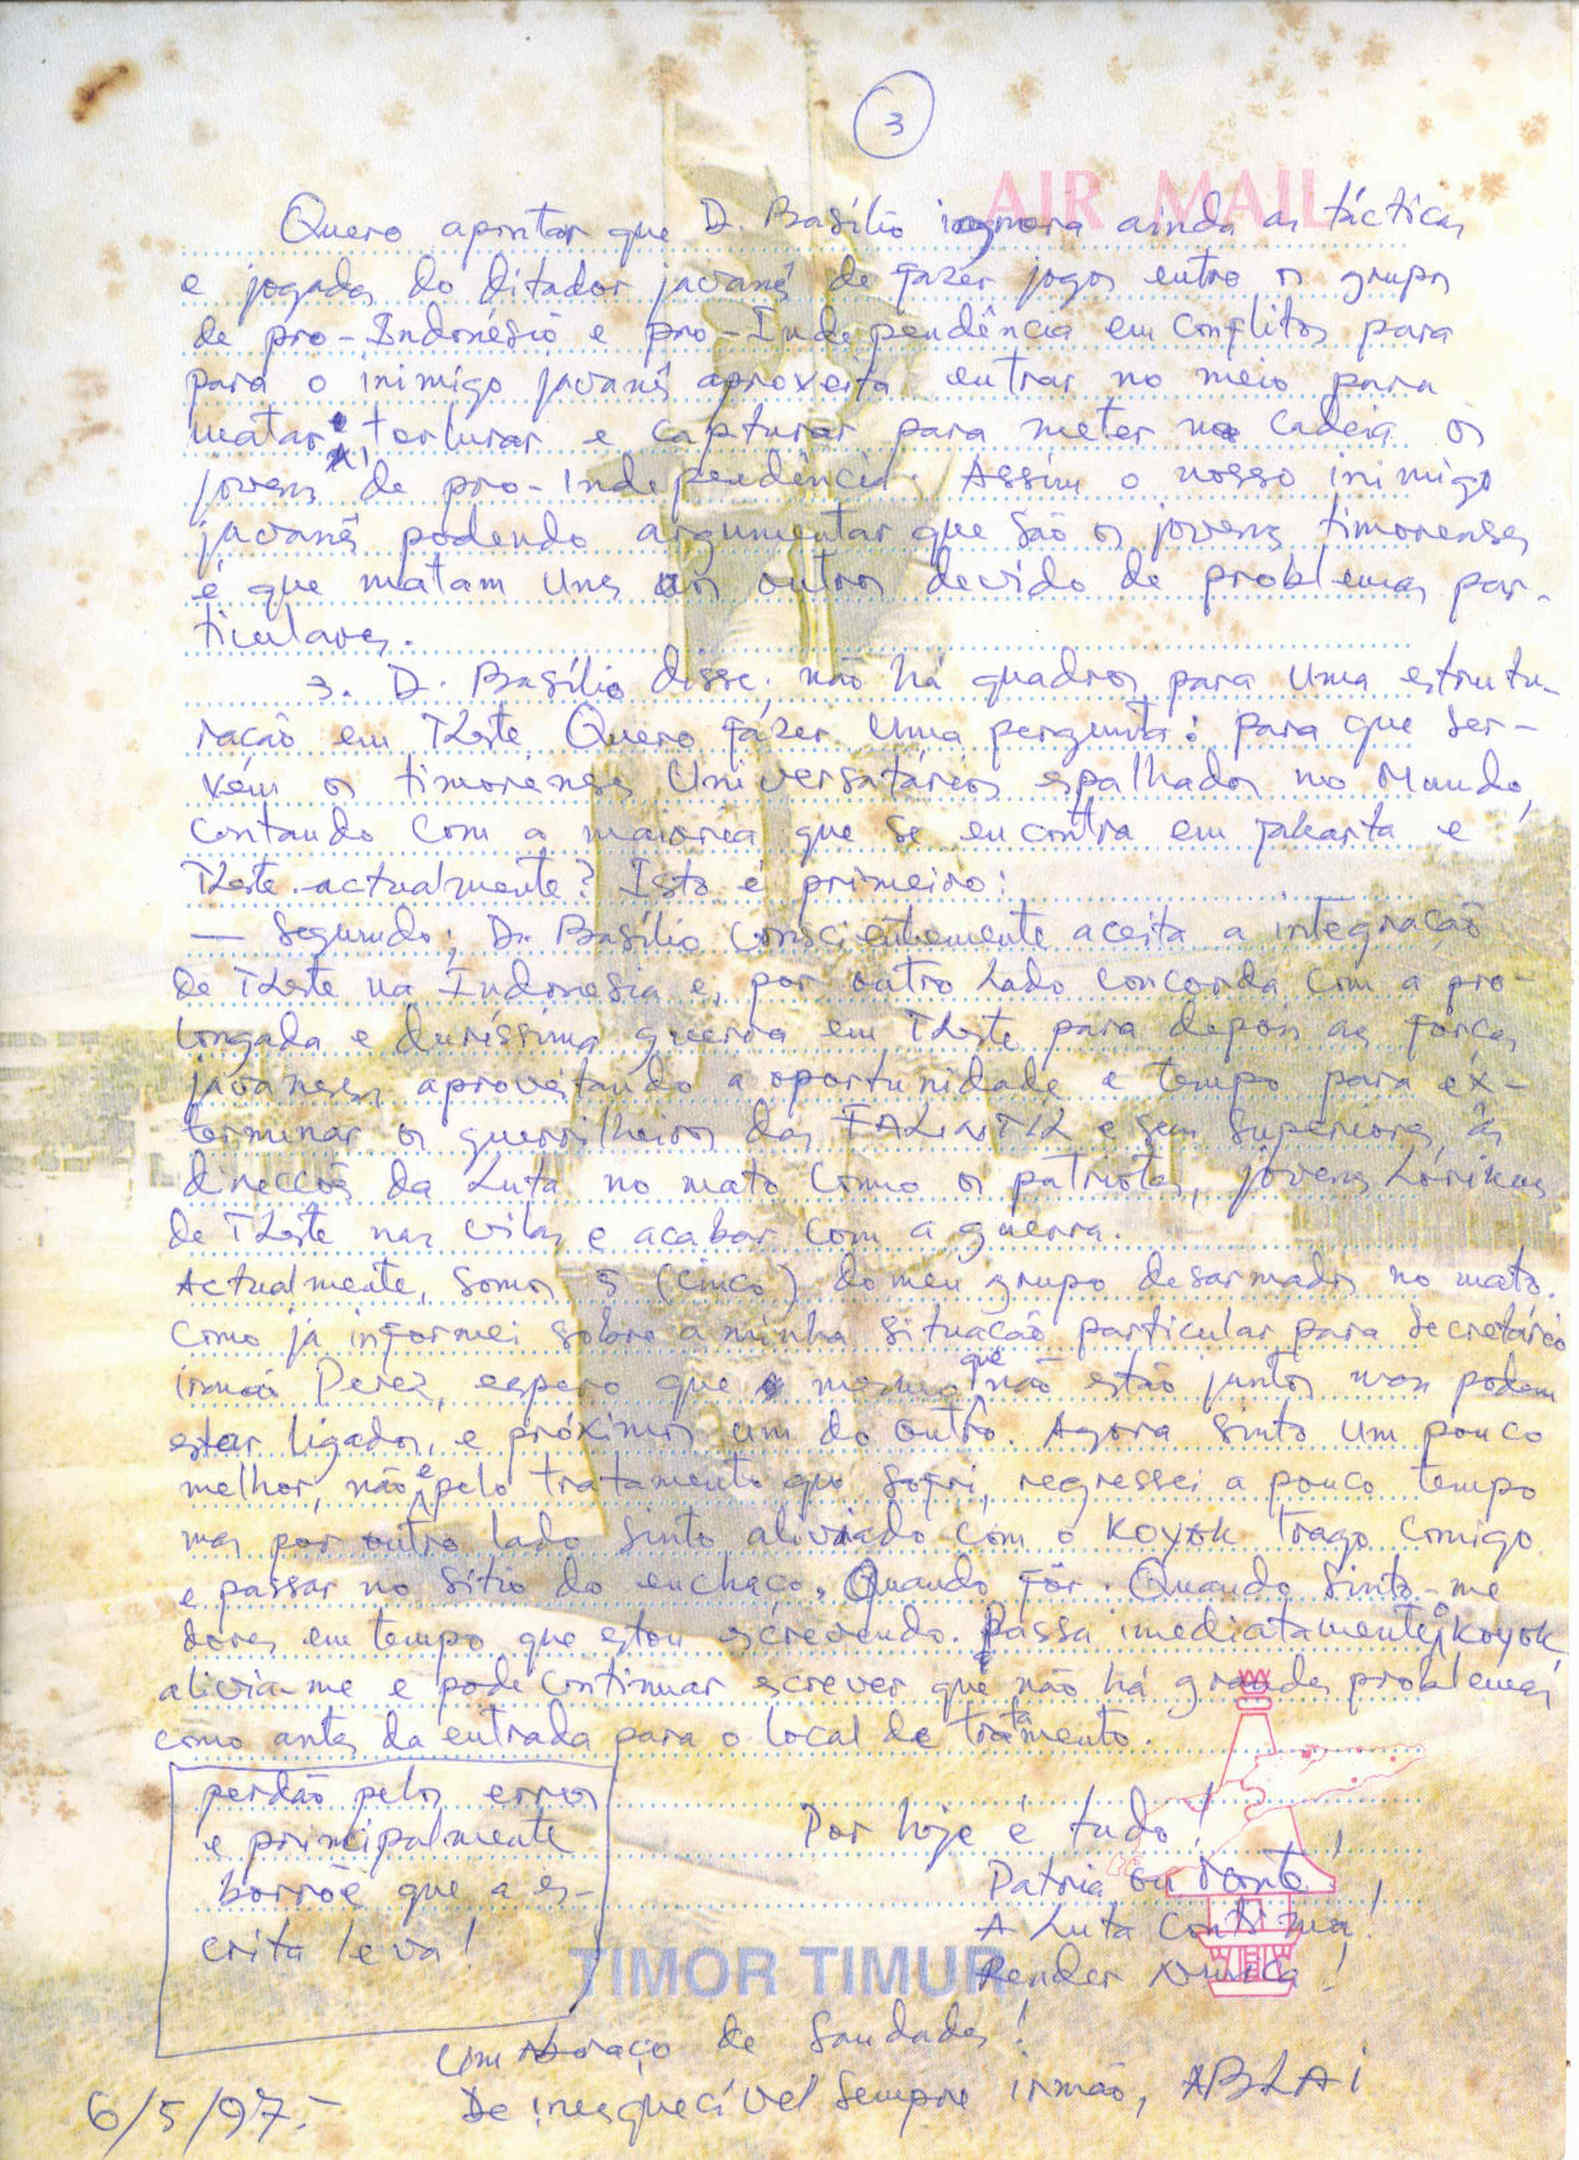 3
AIR MAIL
Quero apontar que D. Basílio ignora ainda as tácticas
e jogadas do ditador javanês de fazer jogos entre os grupos
de pro-Indonésio e pro-Independência em conflitos para
para o inimigo javanês aproveita entrar no meio para
matar, torturar e capturar para meter na cadeia os
jovens de pro-independência. Assim o nosso inimigo
javanês podendo argumentar que são os jovens timorenses
é que matam uns aos outros devido de problemas par-
ticulares.
3. D. Basílio disse; não há quadros para uma estrutu-
ração em TLeste. Quero fazer uma pergunta: para que ser-
vém os timorenses Universatários espalhados no Mundo,
contando com a maioria que se encontra em jakarta e
TLeste actualmente? Isto é primeiro:
— Segundo; D. Basílio conscientemente aceita a integração
de TLeste na Indonesia e, por outro lado concorda com a pro-
longada e duríssima guerra em TLeste para depois as forças
javaneses aproveitando a oportunidade e tempo para ex-
terminar os guerrilheiros das FALINTIL e seus superiores, as
direcções da Luta no mato como os patriotas, jovens Lorikas
de TLeste nas vilas e acabar com a guerra.
Actualmente, somos 5 (cinco) do meu grupo desarmados no mato.
Como já informei sobre a minha situação particular para Secretário
irmão Perez, espero que mesmo que não estão juntos mas podem
estar ligados, e próximos um do outro. Agora sinto um pouco
melhor, não é pelo tratamento que sofri, regressei a pouco tempo
mas por outro lado sinto aliviado com o Koyok trago comigo
e passar no sítio do enchaço. Quando fôr. Quando sinto-me
dores em tempo que estou escrevendo. Passa imediatamente o Koyok
alivia-me e pode continuar escrever que não há grandes problemas
como antes da entrada para o local de tratamento.
perdão pelos erros
e principalmente
borrõe que a es-
crita leva!
Por hoje é tudo!
Patria ou Morte!
A Luta Continua!
Render Nunca!
TIMOR TIMUR
Um Abraço de Saudades!
De inesquecível sempre irmão, ABLAI
6/5/97.-